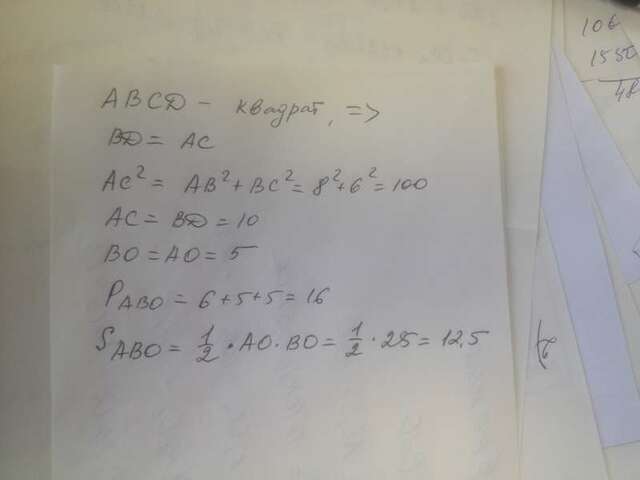 ABCD - квадрат, =>
BD = AC
AC² = AB² + BC² = 8² + 6² = 100
AC = BD = 10
BO = AO = 5
P ABO = 6 + 5 + 5 = 16
S ABO = 1/2 · AO · BO = 1/2 · 25 = 12,5
106
1550
48